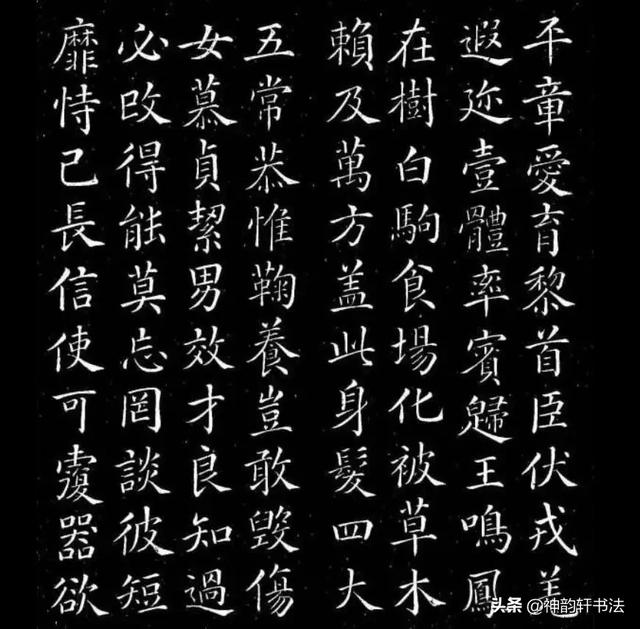 平章愛育黎首臣伏戎羌
遐迩壹體率賓歸王鳴鳳
在樹白駒食場化被草木
賴及萬方盖此身髮四大
五常恭惟鞠養豈敢毀傷
女慕貞絜男效才良知過
必改得能莫忘罔談彼短
靡恃己長信使可覆器欲
头条 @神韵轩书法